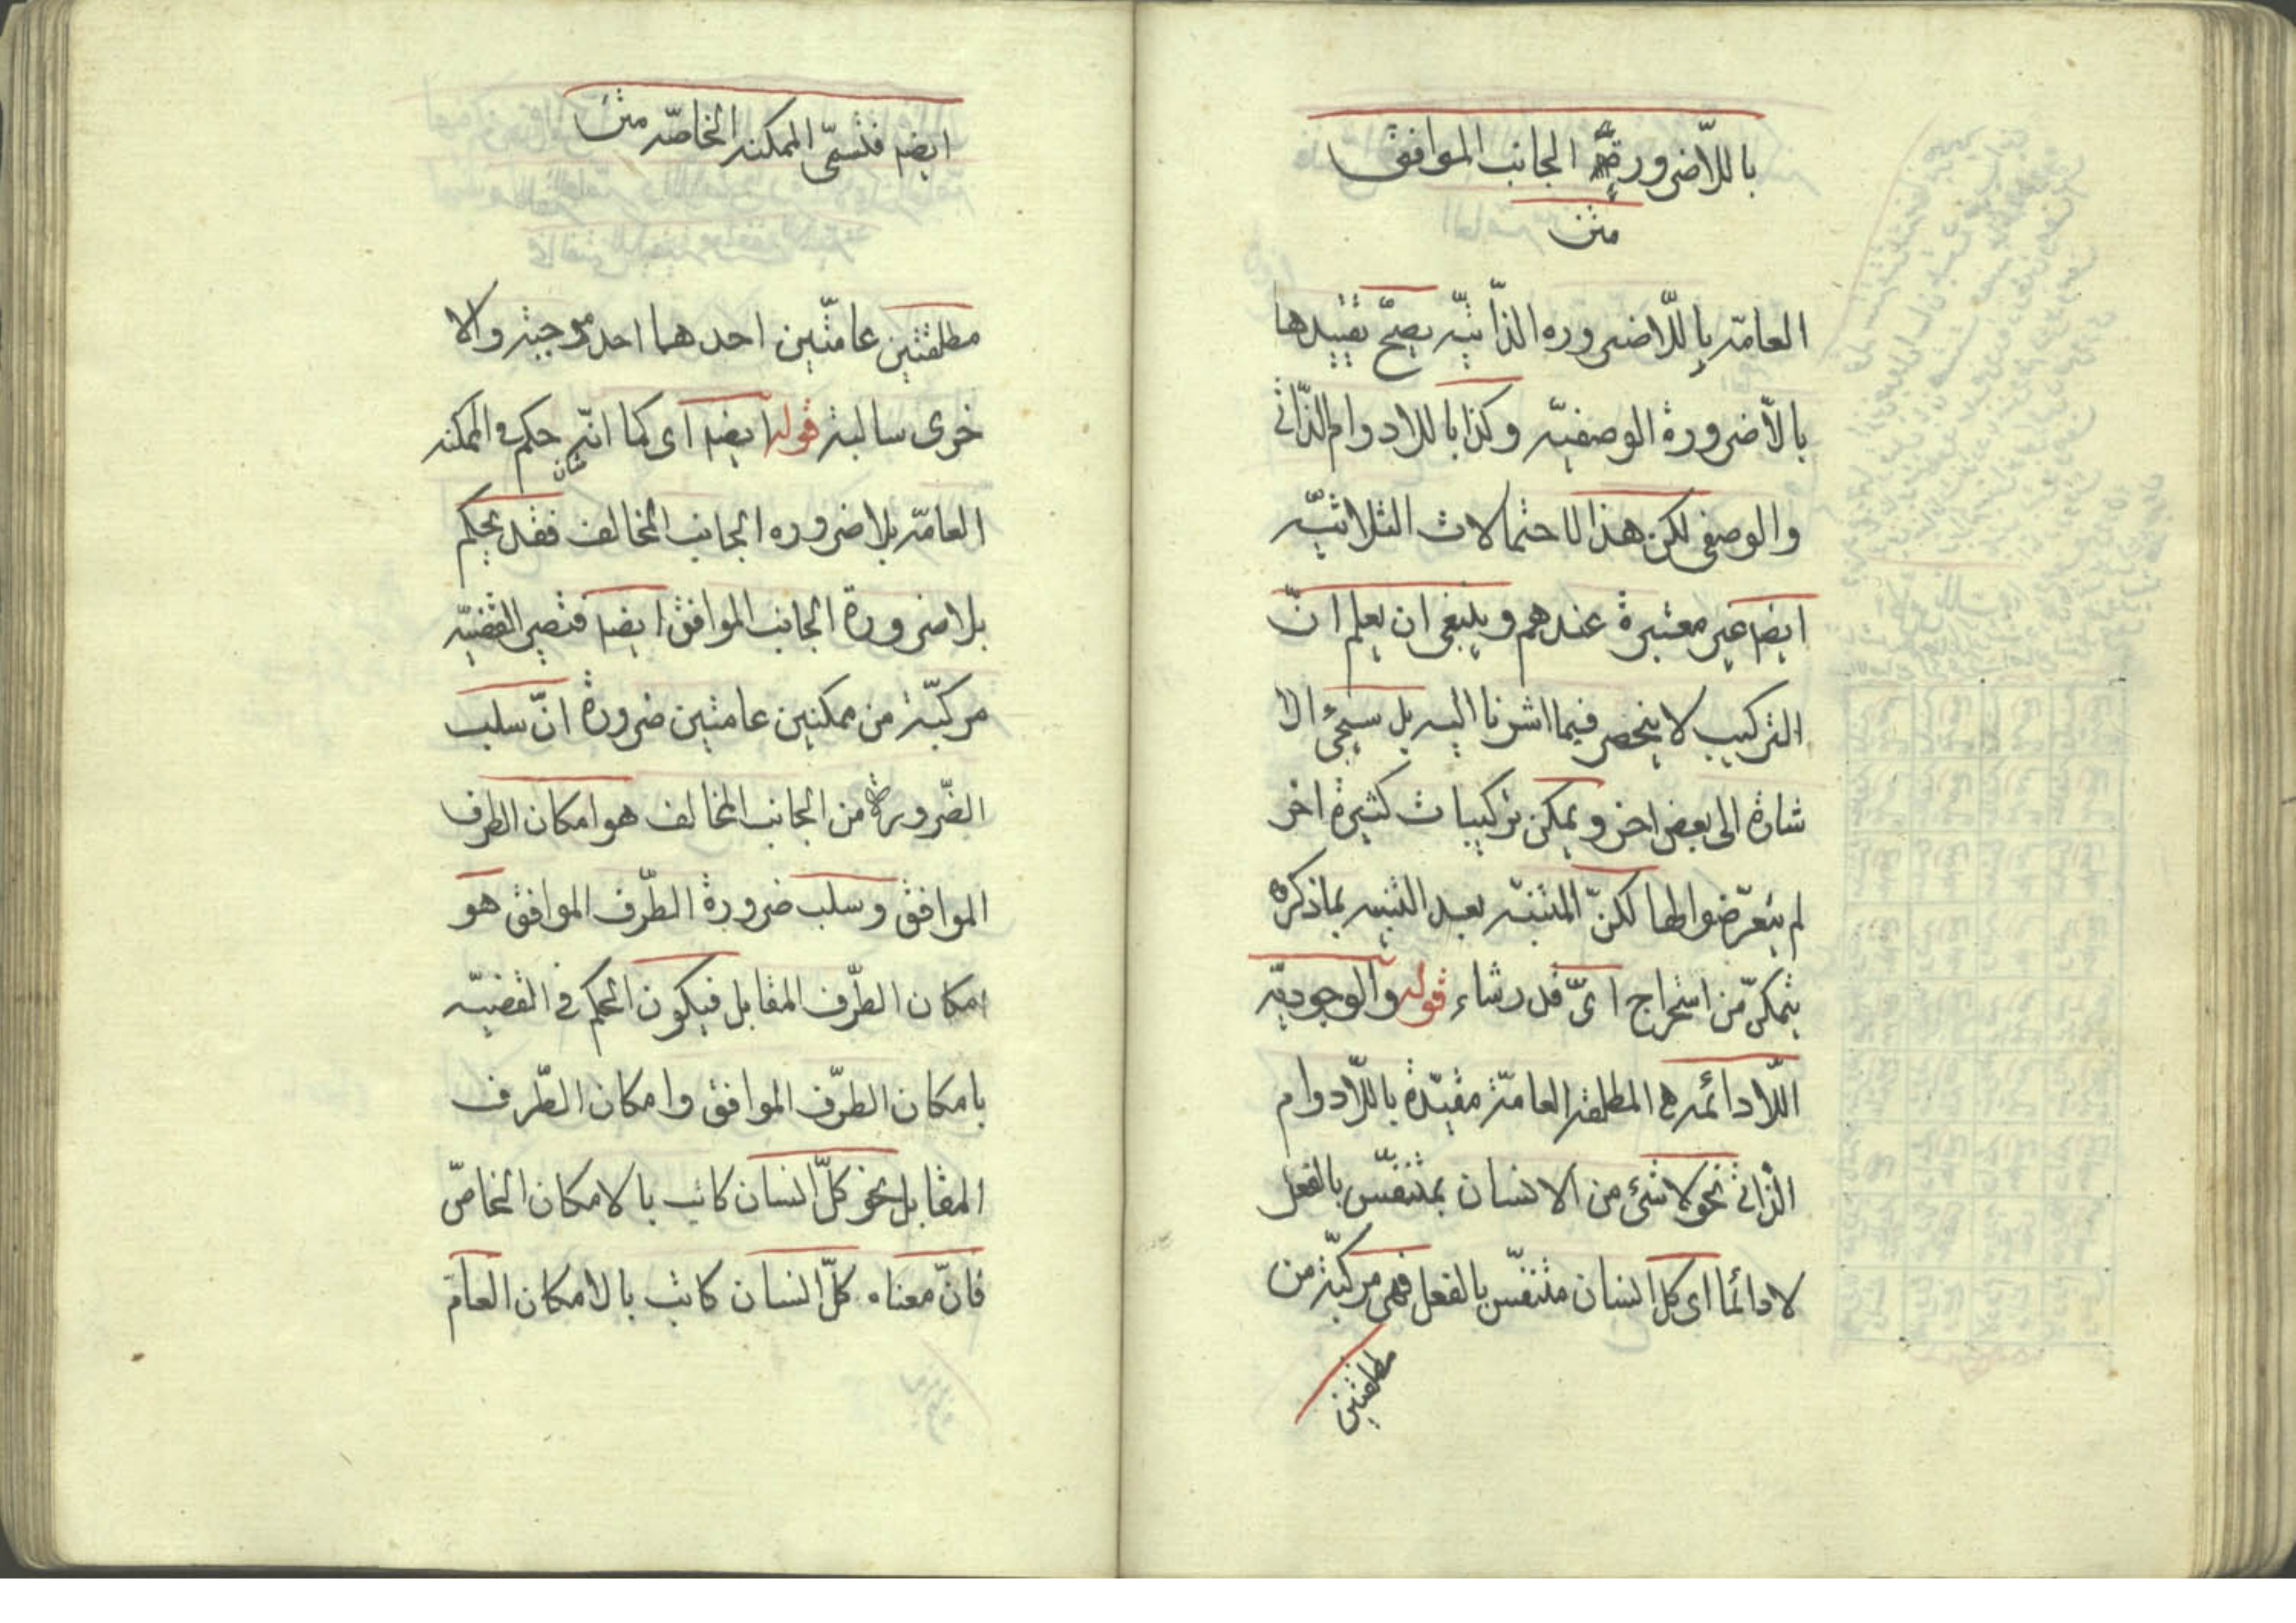 باللّاضرورة الجانب الموافق
متن
العامّه باللّاضروره الذّاتيّه يصحّ تقييدها
بالاّضرورة الوصفيّه وكذا باللادوام الذّاتى
والوصفى لكن هذا لاحتمالات الثلاثيّه
ايضا غير معتبرة عندهم وينبغى ان يعلم انّ
التركيب لا ينحصر فيما اشرنا اليه بل سيجئ الا
شارة الى بعض اخر ويمكن تركيبات كثيرة اخر
لم يتعرّضوا لها لكنّ المتنبّه بعد التنبيه بماذكره
يتمكّن من استخراج اىّ قدر شاء قوله والوجوديّه
اللّادائمه هى المطلقه العامّة مقيّدة باللّادوام
الذاتى نحو لا شئ من الانسان بمتنفّس بالفعل
لادائما اى كل انسان متنفّس بالفعل فهى مركّبة من
مطلقتين
ايضا فتسمّى الممكنه الخاصّه متن
مطلقتين عامّتين احدهما احد موجبة والا
خرى سالبة قوله ايضا اى كما انّه حكم فى الممكنه
العامّه بلا ضروره الجانب المخالف فقد يحكم
بلا ضرورة الجانب الموافق ايضا فتصير القضيّه
مركّبة من ممكنين عامتين ضرورة انّ سلب
الضّرورة من الجانب المخالف هو امكان الطرف
الموافق وسلب ضرورة الطّرف الموافق هو
امكان الطّرف المقابل فيكون الحكم فى القضيّه
بامكان الطّرف الموافق وامكان الطّرف
المقابل نحو كلّ انسان كاتب بالامكان الخاصّ
فانّ معناه كلّ انسان كاتب بالامكان العامّ